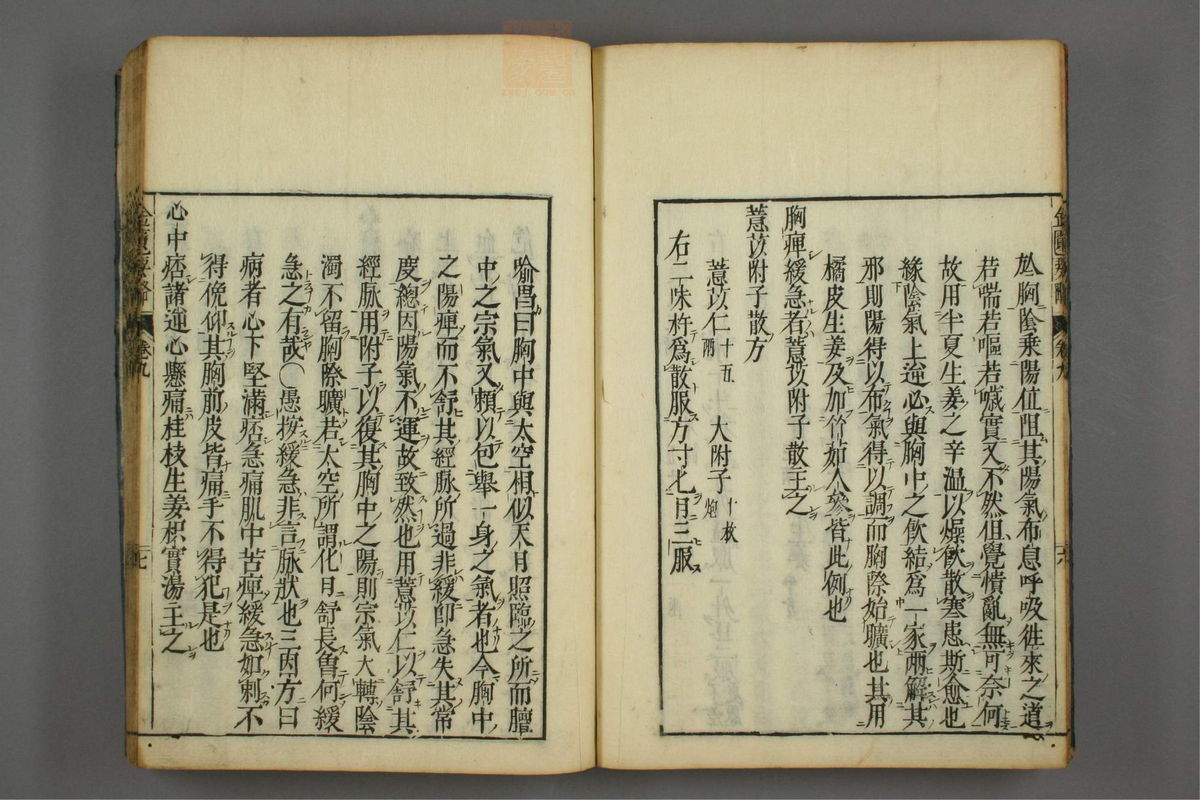 於胸陰乗陽位阻其陽氣布息呼吸徃來之道
若喘若嘔若噦實又不然但覺憒亂無可奈何
故用半夏生姜之辛溫以燥飲散寒患斯愈也
緣陰氣上逆心與胸中之飲結為一家兩解其
邪則陽得以布氣得以調而胸際始曠也其用
橘皮生姜及加竹茹人參皆此例也
胸痺緩急者薏苡附子散主之
薏苡附子散方
薏苡仁十五兩 大附子十枚炮
右二味杵為散服方寸匕日三服
喻昌曰胸中與太空相似天日照臨之所而膻
中之宗氣又頼以包舉一身之氣者也今胸中
之陽痺而不舒其經脉所過非緩即急失其常
度總因陽氣不運故致然也用薏苡仁以舒其
經脉用附子以復其胸中之陽則宗氣大轉陰
濁不留胸際曠若太空所謂化日舒長曾何緩
急之有哉〇愚按緩急非言脉狀也三因方曰
病者心下堅滿痞急痛肌中苦痺緩急如刺不
得俛仰其胸前皮皆痛手不得犯是也
心中痞諸逆心懸痛桂枝生姜枳實湯主之
卷九